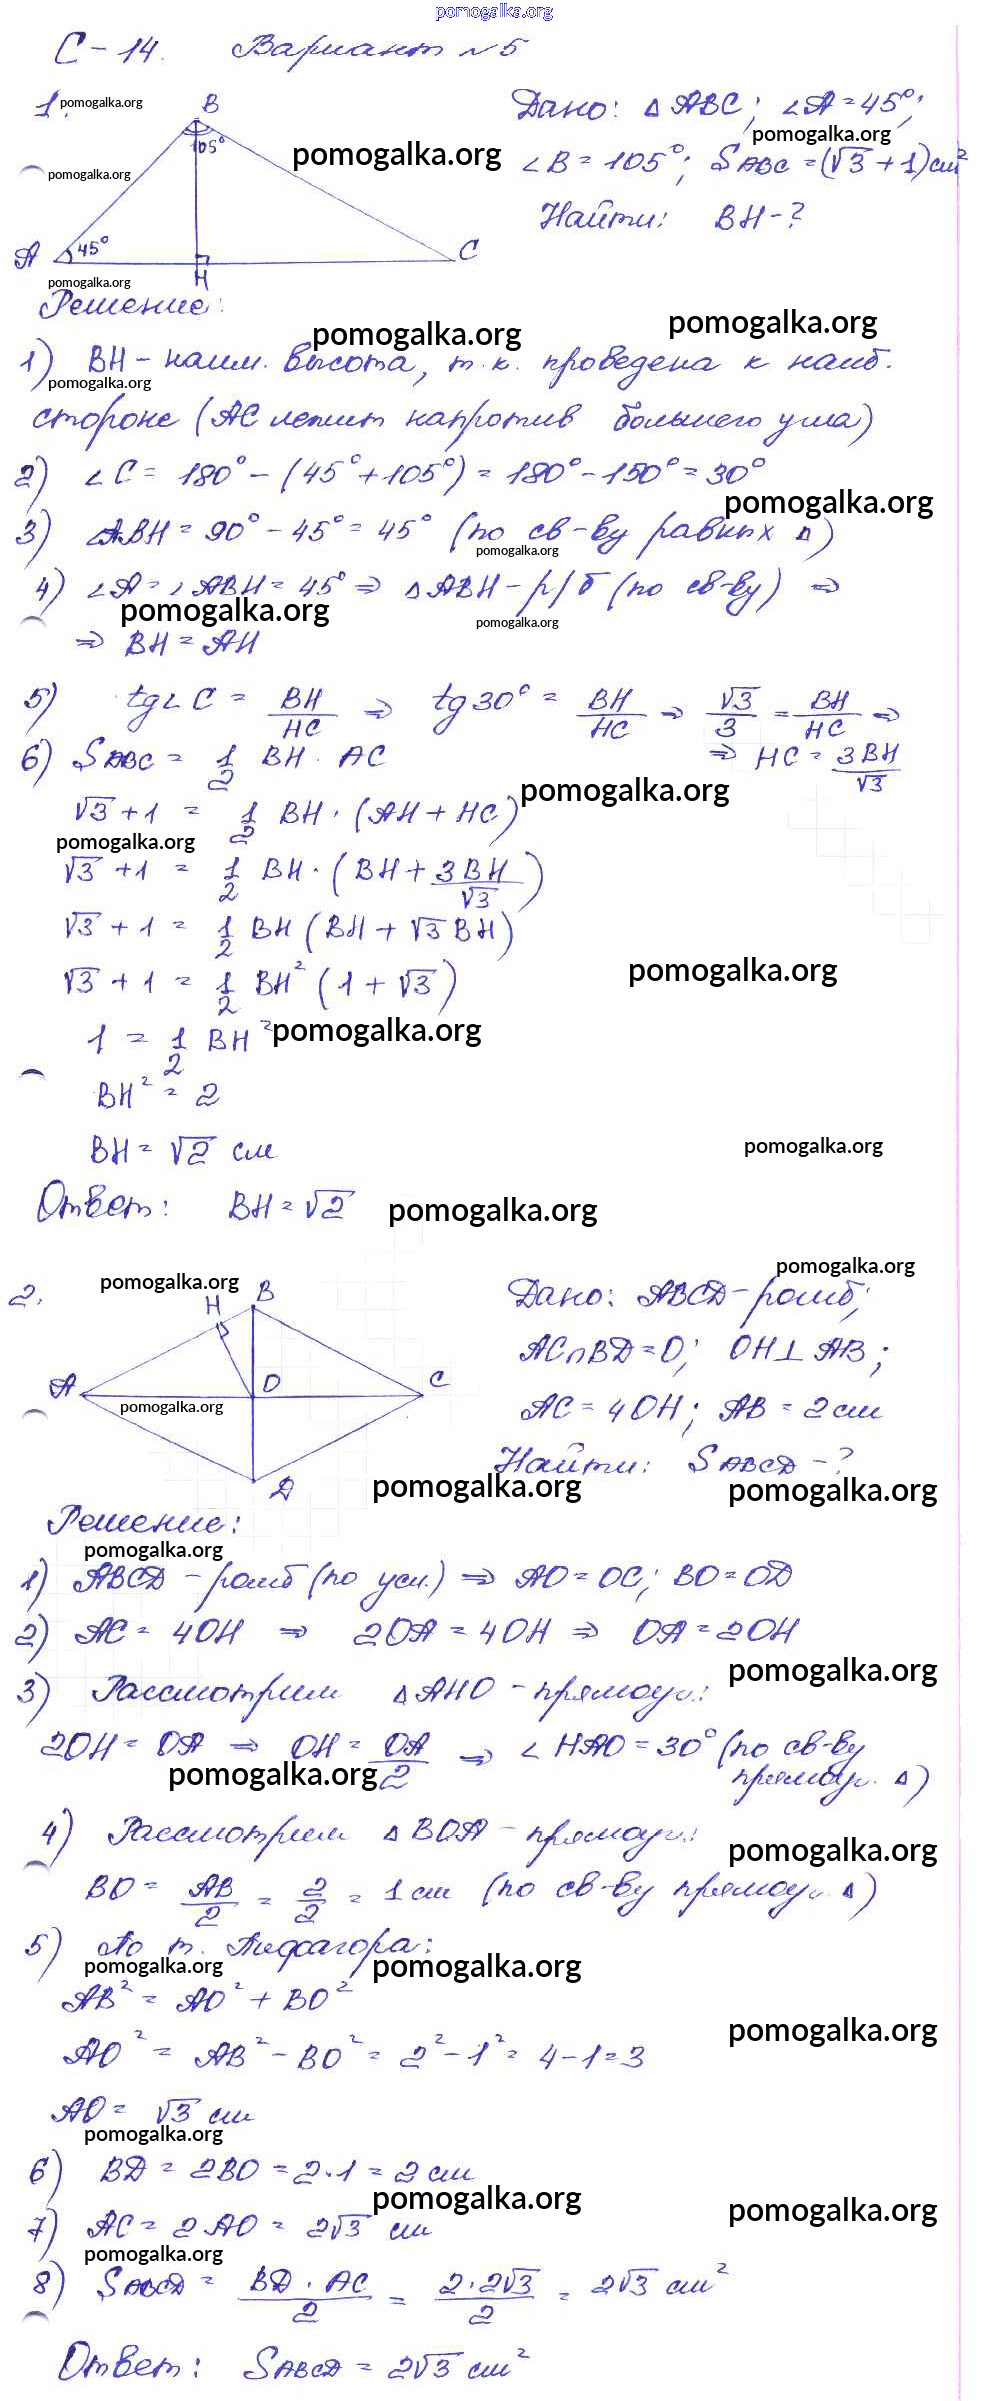 pomogalka.org
С-14. Вариант №5
1. pomogalka.org
B
105°
A 45°
H
C
Дано: △ABC; ∠A=45°;
pomogalka.org
pomogalka.org
pomogalka.org
∠B=105°; S ABC = (√3+1)см²
Найти: BH-?
pomogalka.org
Решение:
pomogalka.org
pomogalka.org
1) BH - наим. высота, т.к. проведена к наиб.
pomogalka.org
стороне (AC лежит напротив большего угла)
2) ∠C = 180° - (45°+105°) = 180° - 150° = 30°
pomogalka.org
3) ∠ABH = 90° - 45° = 45° (по св-ву равных △)
pomogalka.org
4) ∠A = ∠ABH = 45° ⇒ △ABH - р/б (по св-ву) ⇒
pomogalka.org
pomogalka.org
⇒ BH = AH
5) tg∠C = BH/HC ⇒ tg30° = BH/HC ⇒ √3/3 = BH/HC ⇒
⇒ HC = 3BH/√3
6) S ABC = 1/2 BH · AC
pomogalka.org
√3+1 = 1/2 BH · (AH+HC)
pomogalka.org
√3+1 = 1/2 BH · (BH + 3BH/√3)
√3+1 = 1/2 BH (BH + √3 BH)
pomogalka.org
√3+1 = 1/2 BH² (1+√3)
1 = 1/2 BH²
pomogalka.org
BH² = 2
BH = √2 см
pomogalka.org
Ответ: BH = √2
pomogalka.org
2.
pomogalka.org
H
B
A
O
C
D
pomogalka.org
pomogalka.org
Дано: ABCD - ромб;
AC∩BD=O; OH⊥AB;
AC = 4OH; AB = 2см
Найти: S ABCD - ?
pomogalka.org
pomogalka.org
Решение:
pomogalka.org
1) ABCD - ромб (по усл.) ⇒ AO=OC; BO=OD
2) AC = 4OH ⇒ 2OA = 4OH ⇒ OA = 2OH
pomogalka.org
3) Рассмотрим △AHO - прямоуг.:
2OH = OA ⇒ OH = OA/2 ⇒ ∠HAO = 30° (по св-ву
прямоуг. △)
pomogalka.org
4) Рассмотрим △BOA - прямоуг.:
pomogalka.org
BO = AB/2 = 2/2 = 1см (по св-ву прямоуг. △)
5) По т. Пифагора:
pomogalka.org
pomogalka.org
AB² = AO² + BO²
pomogalka.org
AO² = AB² - BO² = 2² - 1² = 4-1=3
AO = √3 см
pomogalka.org
6) BD = 2BO = 2·1 = 2см
pomogalka.org
pomogalka.org
7) AC = 2AO = 2√3 см
pomogalka.org
8) S ABCD = BD · AC/2 = 2·2√3/2 = 2√3 см²
Ответ: S ABCD = 2√3 см²